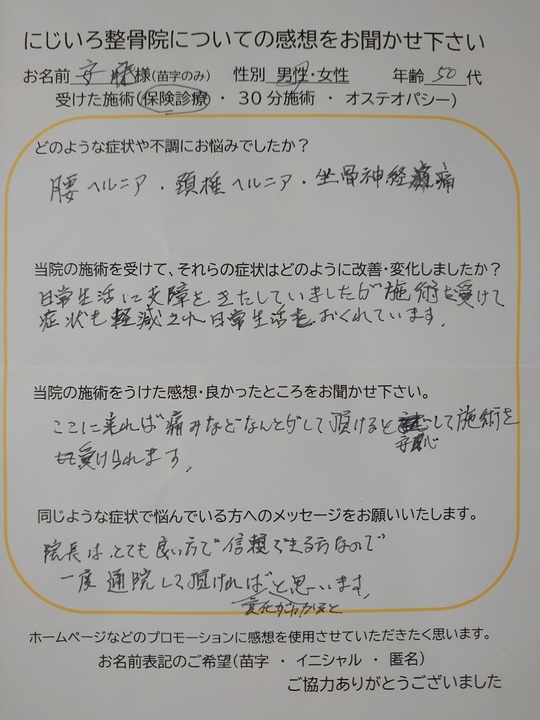 にじいろ整骨院についての感想をお聞かせ下さい
お名前 安 様(苗字のみ) 性別 男性・女性 年齢 50 代
受けた施術(保険診療 ・ 30分施術 ・ オステオパシー)
どのような症状や不調にお悩みでしたか?
腰ヘルニア・頚椎ヘルニア・坐骨神経痛
当院の施術を受けて、それらの症状はどのように改善・変化しましたか?
日常生活に支障をきたしていましたが施術を受けて
症状も軽減され日常生活をおくれています。
当院の施術をうけた感想・良かったところをお聞かせ下さい。
ここに来れば痛みなどなんとかして頂けると安心して施術を
も受けられます。
同じような症状で悩んでいる方へのメッセージをお願いいたします。
院長は、とても良い方で信頼できる方なので
一度通院して頂ければと思います。
変化がわかると
ホームページなどのプロモーションに感想を使用させていただきたく思います。
お名前表記のご希望(苗字 ・ イニシャル ・ 匿名)
ご協力ありがとうございました